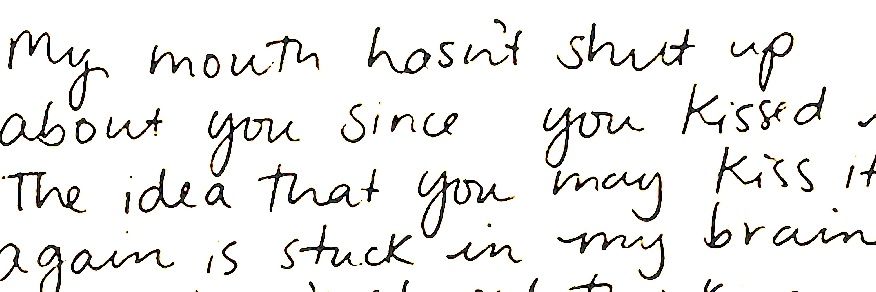 My mouth hasn't shut up
about you since you kissed
The idea that you may kiss it
again is stuck in my brain